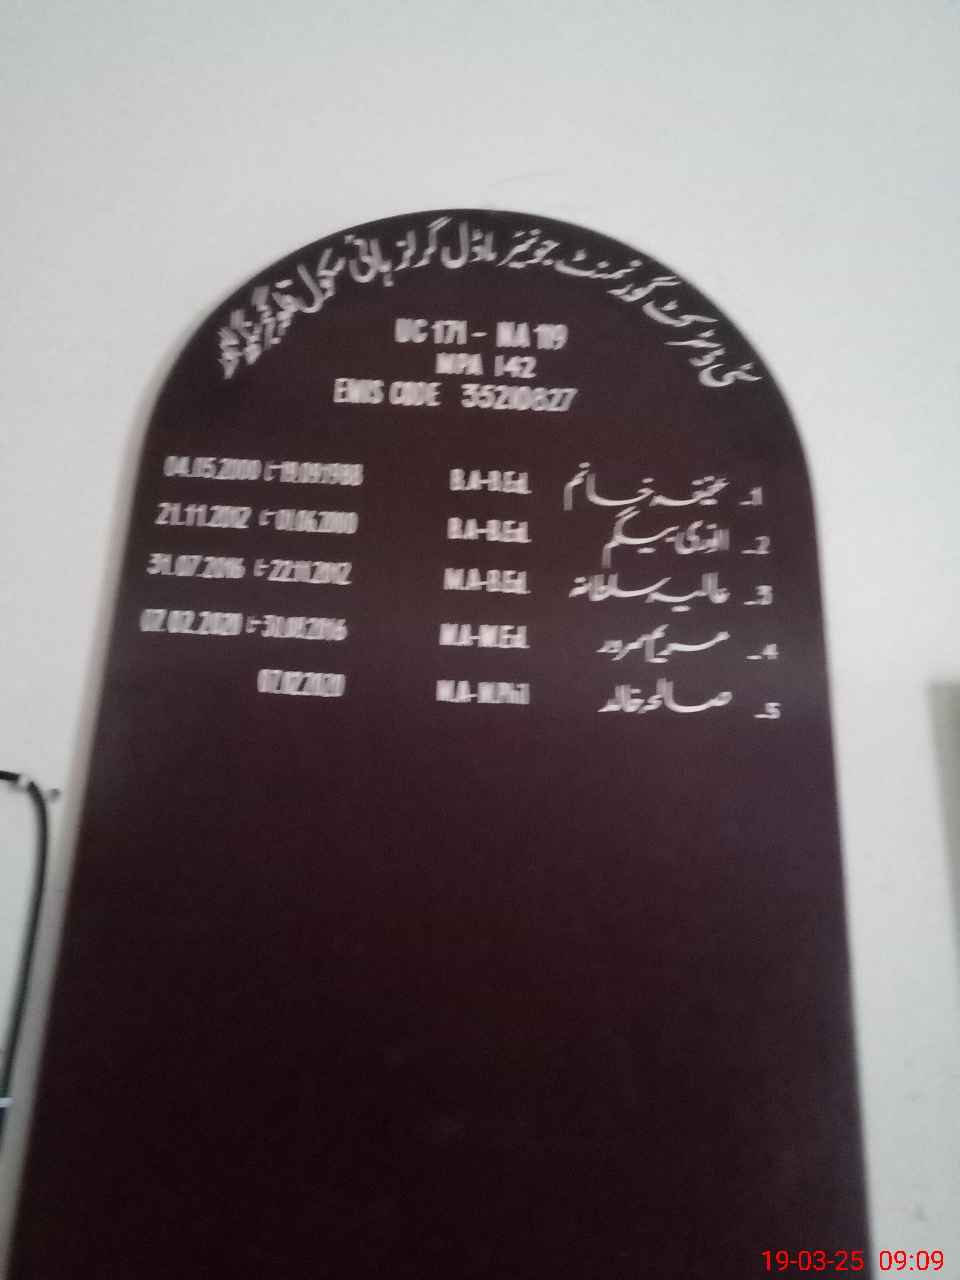 سٹی ڈسٹرکٹ گورنمنٹ جونیئر ماڈل گرلز ہائی سکول قلعہ
UC 171 - NA 119
MPA 142
EMIS CODE 35210827
1۔ عفیفہ خانم B.A-B.Ed. 19.09.1988 تا 04.05.2000
2۔ انوری بیگم B.A-B.Ed. 01.06.2000 تا 21.11.2012
3۔ عالیہ سلطانہ M.A-B.Ed. 22.11.2012 تا 31.07.2016
4۔ مریم سرور M.A-M.Ed. تا 07.02.2020
5۔ صالحہ خالد M.A-M.Phil 07.02.2020
19-03-25 09:09